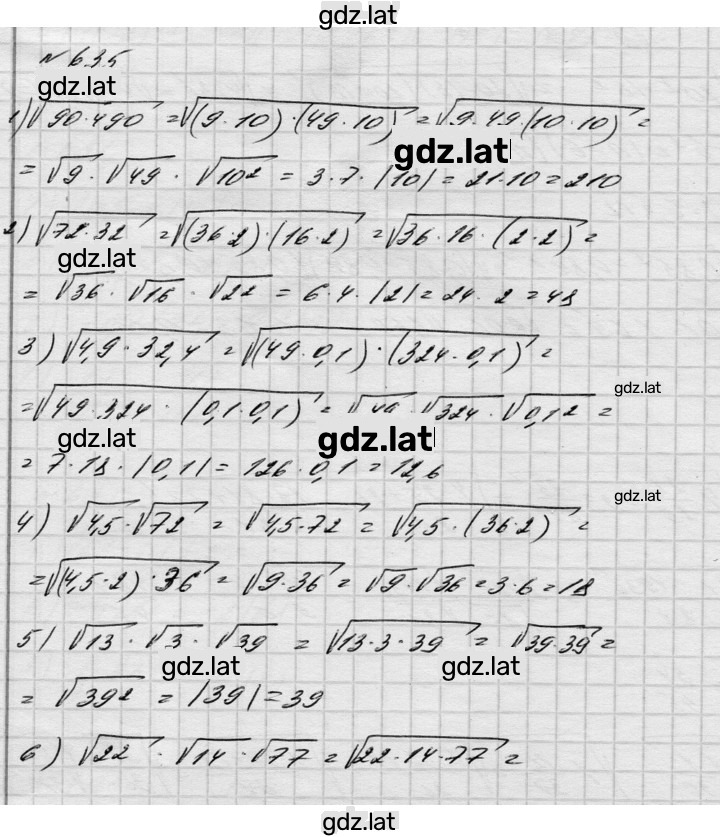 gdz.lat
№ 635
gdz.lat
1) √(90·490) = √((9·10)·(49·10)) = √(9·49·(10·10)) =
gdz.lat
= √9 · √49 · √10² = 3·7·|10| = 21·10 = 210
2) √(72·32) = √((36·2)·(16·2)) = √(36·16·(2·2)) =
gdz.lat
= √36 · √16 · √2² = 6·4·|2| = 24·2 = 48
3) √(4,9·32,4) = √((49·0,1)·(324·0,1)) =
gdz.lat
= √(49·324·(0,1·0,1)) = √49 · √324 · √0,1² =
gdz.lat gdz.lat
= 7·18·|0,1| = 126·0,1 = 12,6
gdz.lat
4) √4,5 · √72 = √(4,5·72) = √(4,5·(36·2)) =
= √((4,5·2)·36) = √(9·36) = √9 · √36 = 3·6 = 18
5) √13 · √3 · √39 = √(13·3·39) = √(39·39) =
gdz.lat gdz.lat
= √39² = |39| = 39
6) √22 · √14 · √77 = √(22·14·77) =
gdz.lat